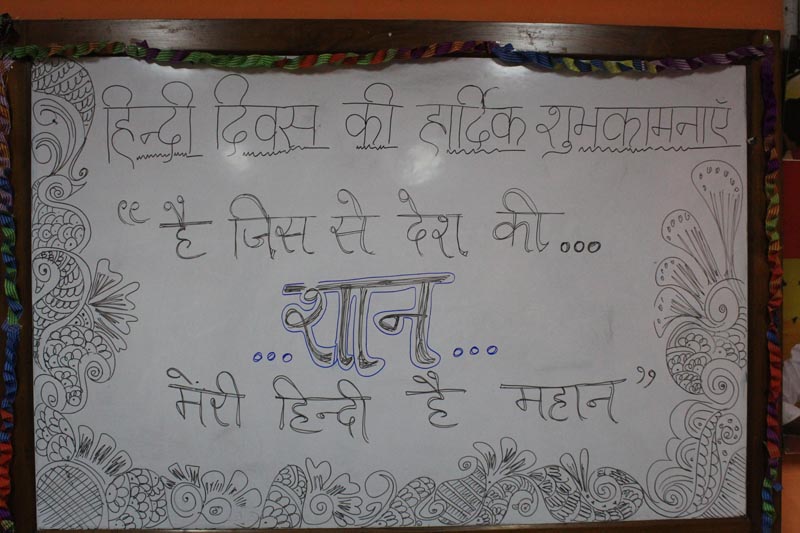 हिन्दी दिवस की हार्दिक शुभकामनाएँ
“ है जिस से देश की...
...शान...
मेरी हिन्दी है महान ”